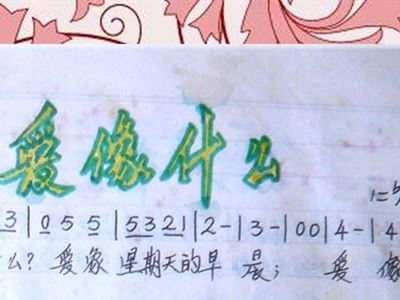 爱像什么
3|055|5321|2-|3-|00|4-|4
么？爱象星期天的早晨；爱像